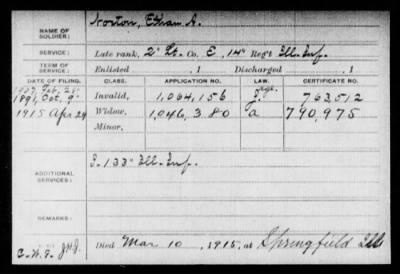 NAME OF SOLDIER: Norton, A.
SERVICE: Late rank, 2" Lt. Co. E, 14" Reg't Ill. Inf.
TERM OF SERVICE: Enlisted , 1 Discharged , 1
DATE OF FILING. CLASS. APPLICATION NO. CERTIFICATE NO.
1907, Feb. 28"
1891, Oct. 9" Invalid, 1,064,156 763,512
1915 Apr 24 Widow, 1,046,380 a 790,975
Minor,
ADDITIONAL SERVICES: I-133" Ill. Inf.
REMARKS:
Died Mar 10, 1915, at Springfield Ills